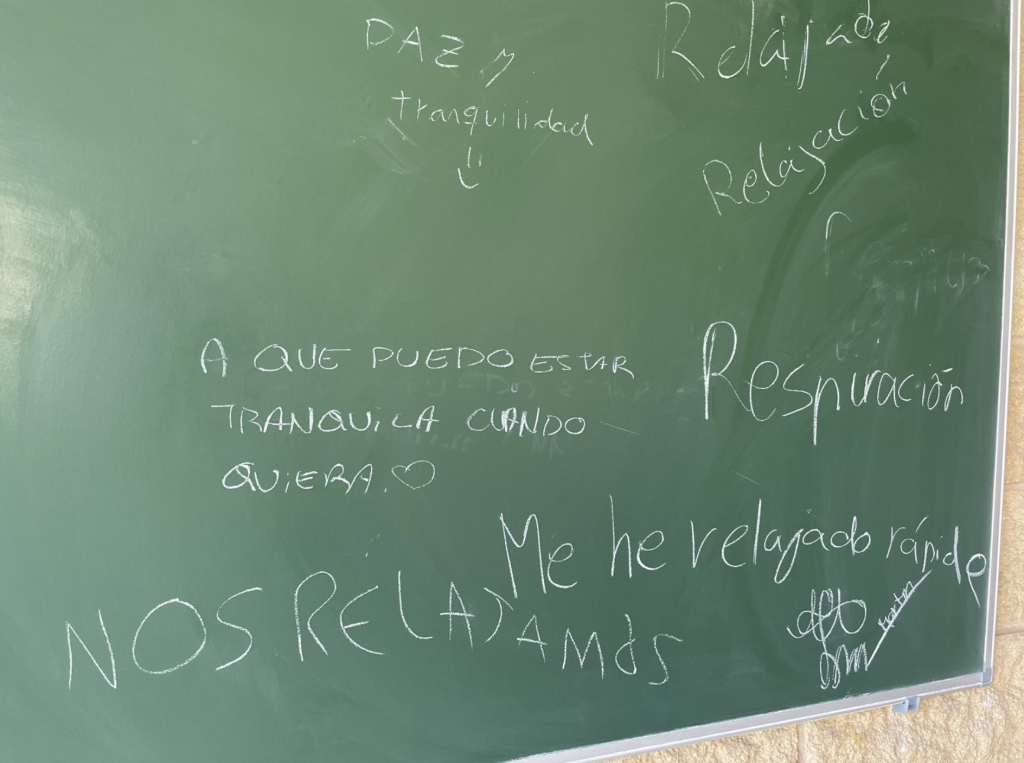 PAZ y
tranquilidad
Relájado
Relajación
A QUE PUEDO ESTAR
TRANQUILA CUANDO
QUIERA.
Respiración
Me he relajado rápido
NOS RELAJAMOS